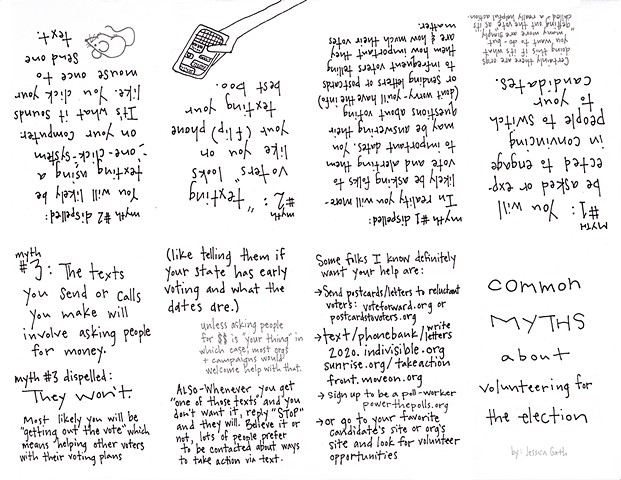 common
MYTHS
about
volunteering for
the election
by: Jessica
MYTH
#1: You will
be asked or exp-
ected to engage
in convincing
people to switch
to your
candidates.
Certainly there are orgs
doing this if it's what
you want to do- but
many more are simply
"getting out the vote" as its
called a really helpful action.
myth #1 dispelled:
In reality you will more-
likely be asking folks to
vote and alerting them
to important dates. You
may be answering their
questions about voting
(don't worry-you'll have the info)
or sending letters or postcards
to infrequent voters telling
them how important they
are & how much their votes
matter.
myth
#2: "Texting
voters" looks
like you on
your (flip) phone
texting your
best boo.
myth #2 dispelled:
You will likely be
texting using a
"one-click-system"
on your computer.
It's what it sounds
like. You click your
mouse once to
Send one
text.
myth
#3: The texts
you send or calls
you make will
involve asking people
for money.
myth #3 dispelled:
They won't.
Most likely you will be
"getting out the vote" which
means helping other voters
with their voting plans
(like telling them if
your state has early
voting and what the
dates are.)
unless asking people
for $$ is "your thing" in
which case, most orgs
+ campaigns would
welcome help with that.
ALSO-Whenever you get
"one of those texts" and you
don't want it, reply "STOP"
and they will. Believe it or
not, lots of people prefer
to be contacted about ways
to take action via text.
Some folks I know definitely
want your help are:
→ Send postcards/letters to reluctant
voters: voteforward.org or
postcardstovoters.org
→ text/phonebank/write letters
2020.indivisible.org
sunrise.org/takeaction
front.moveon.org
→ sign up to be a poll-worker
powerthepolls.org
→ or go to your favorite
candidate's site or org's
site and look for volunteer
opportunities